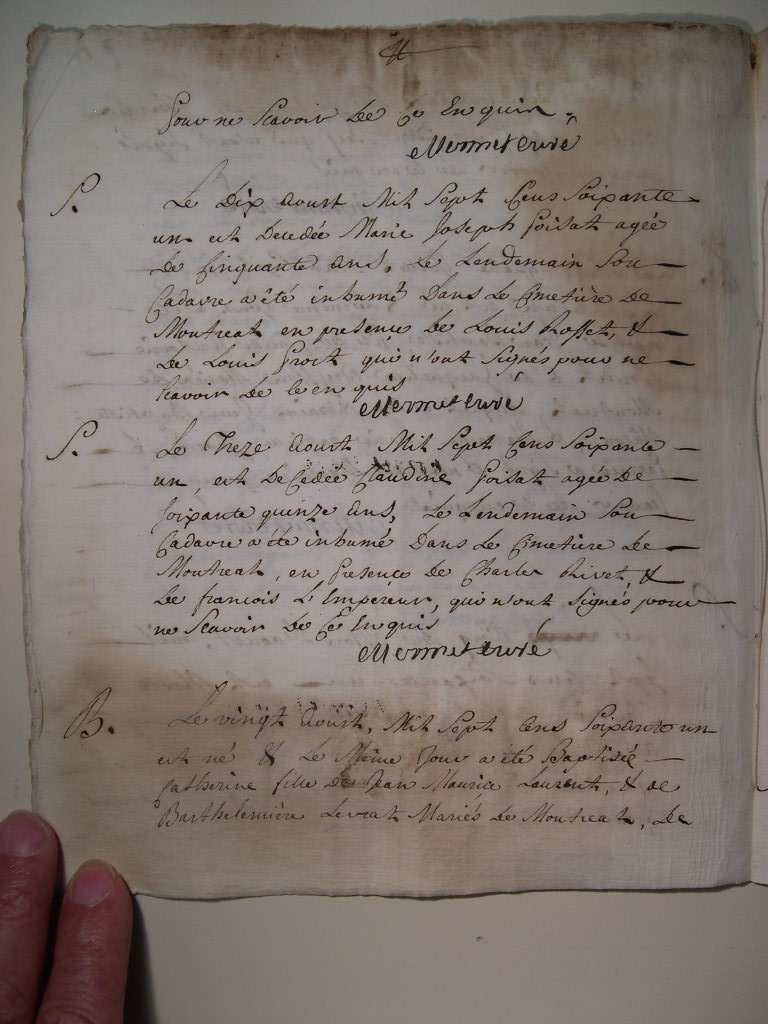 pour ne Scavoir De Ce Enquis.
Mermet curé
S. Le Dix aoust Mil Sept Cens Soixante
un est Decedée Marie Joseph Goisat agée
De Cinquante ans, Le Lendemain Son
Cadavre a été inhumé Dans Le Cimetière De
Montreal en presence De Louis Rosset, &
De Louis qui n'ont Signés pour ne
Scavoir De ce en quis
Mermet curé
S. Le Treze aoust Mil Sept Cens Soixante
un, est DeCedée Claudine Goisat agée De
Soixante quinze ans, Le Lendemain Son
Cadavre a été inhumé Dans Le Cimetière De
Montreal, en presence De Charles Rivet, &
De francois L'Empereur, qui n'ont Signés pour
ne Scavoir De Ce Enquis
Mermet curé
B. Le vingt aoust, Mil Sept Cens Soixante un
est né & Le Même Jour a été Baptisée
Catherine fille De Jean Maurice Laurent, & de
Barthelemière Levrat Mariés de Montreal, De